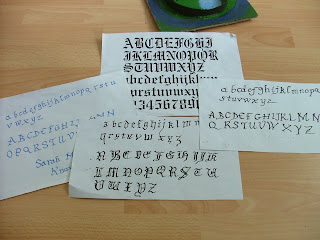 ABCDEFGHI
JKLMNOPQR
STUVWXYZ
abcdefghijkl
mnopqrstuvwx
123456789
abcdefghijklmnopqrstu
vwxyz
ABCDEFGHIJKLMN
OPQRSTUVWXYZ
Sarah
abcdefghijklmn
opqrstuvwxyz
ABCDEFGHIJK
LMNOPQRSTU
VWXYZ
abcdefghijklmnopqr
stuvwxyz
ABCDEFGHIJKLMN
OPQRSTUVWXYZ